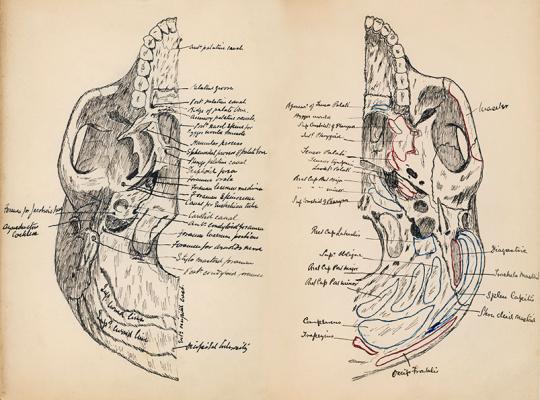 Ant palatine canal
Palatine groove
Post palatine canal
Ridge of palate bone
Accessory palatine canals
Post nasal spine for
azygos uvulae muscle
Hamular process
Sphenoidal process of palate bone
Scaphoid fossa
Foramen ovale
Foramen lacerum medium
Foramen spinosum
Canal for Eustachian tube
Foramen for Jacobson's
Aqueductus
Cochleae
Carotid canal
Ant condyloid foramen
Foramen lacerum posterius
Foramen for Arnold's nerve
Stylo mastoid foramen
Post condyloid foramen
Sup curved line
Inf curved line
Ext occipital crest
Occipital tuberosity
Aponeur of Tensor Palati
Azygos uvulae
Sup Constrict of Pharynx
Int Pterygoid
Tensor Palati
Tensor Tympani
Levat Palati
Rect Cap Ant Major
" " " minor
Sup Constrict of Pharynx
Rect Cap Lateralis
Sup Oblique
Rect Cap Post major
Rect Cap Post minor
Complexus
Trapezius
Masseter
Digastric
Trachelo Mastoid
Splen Capitis
Occip Frontalis